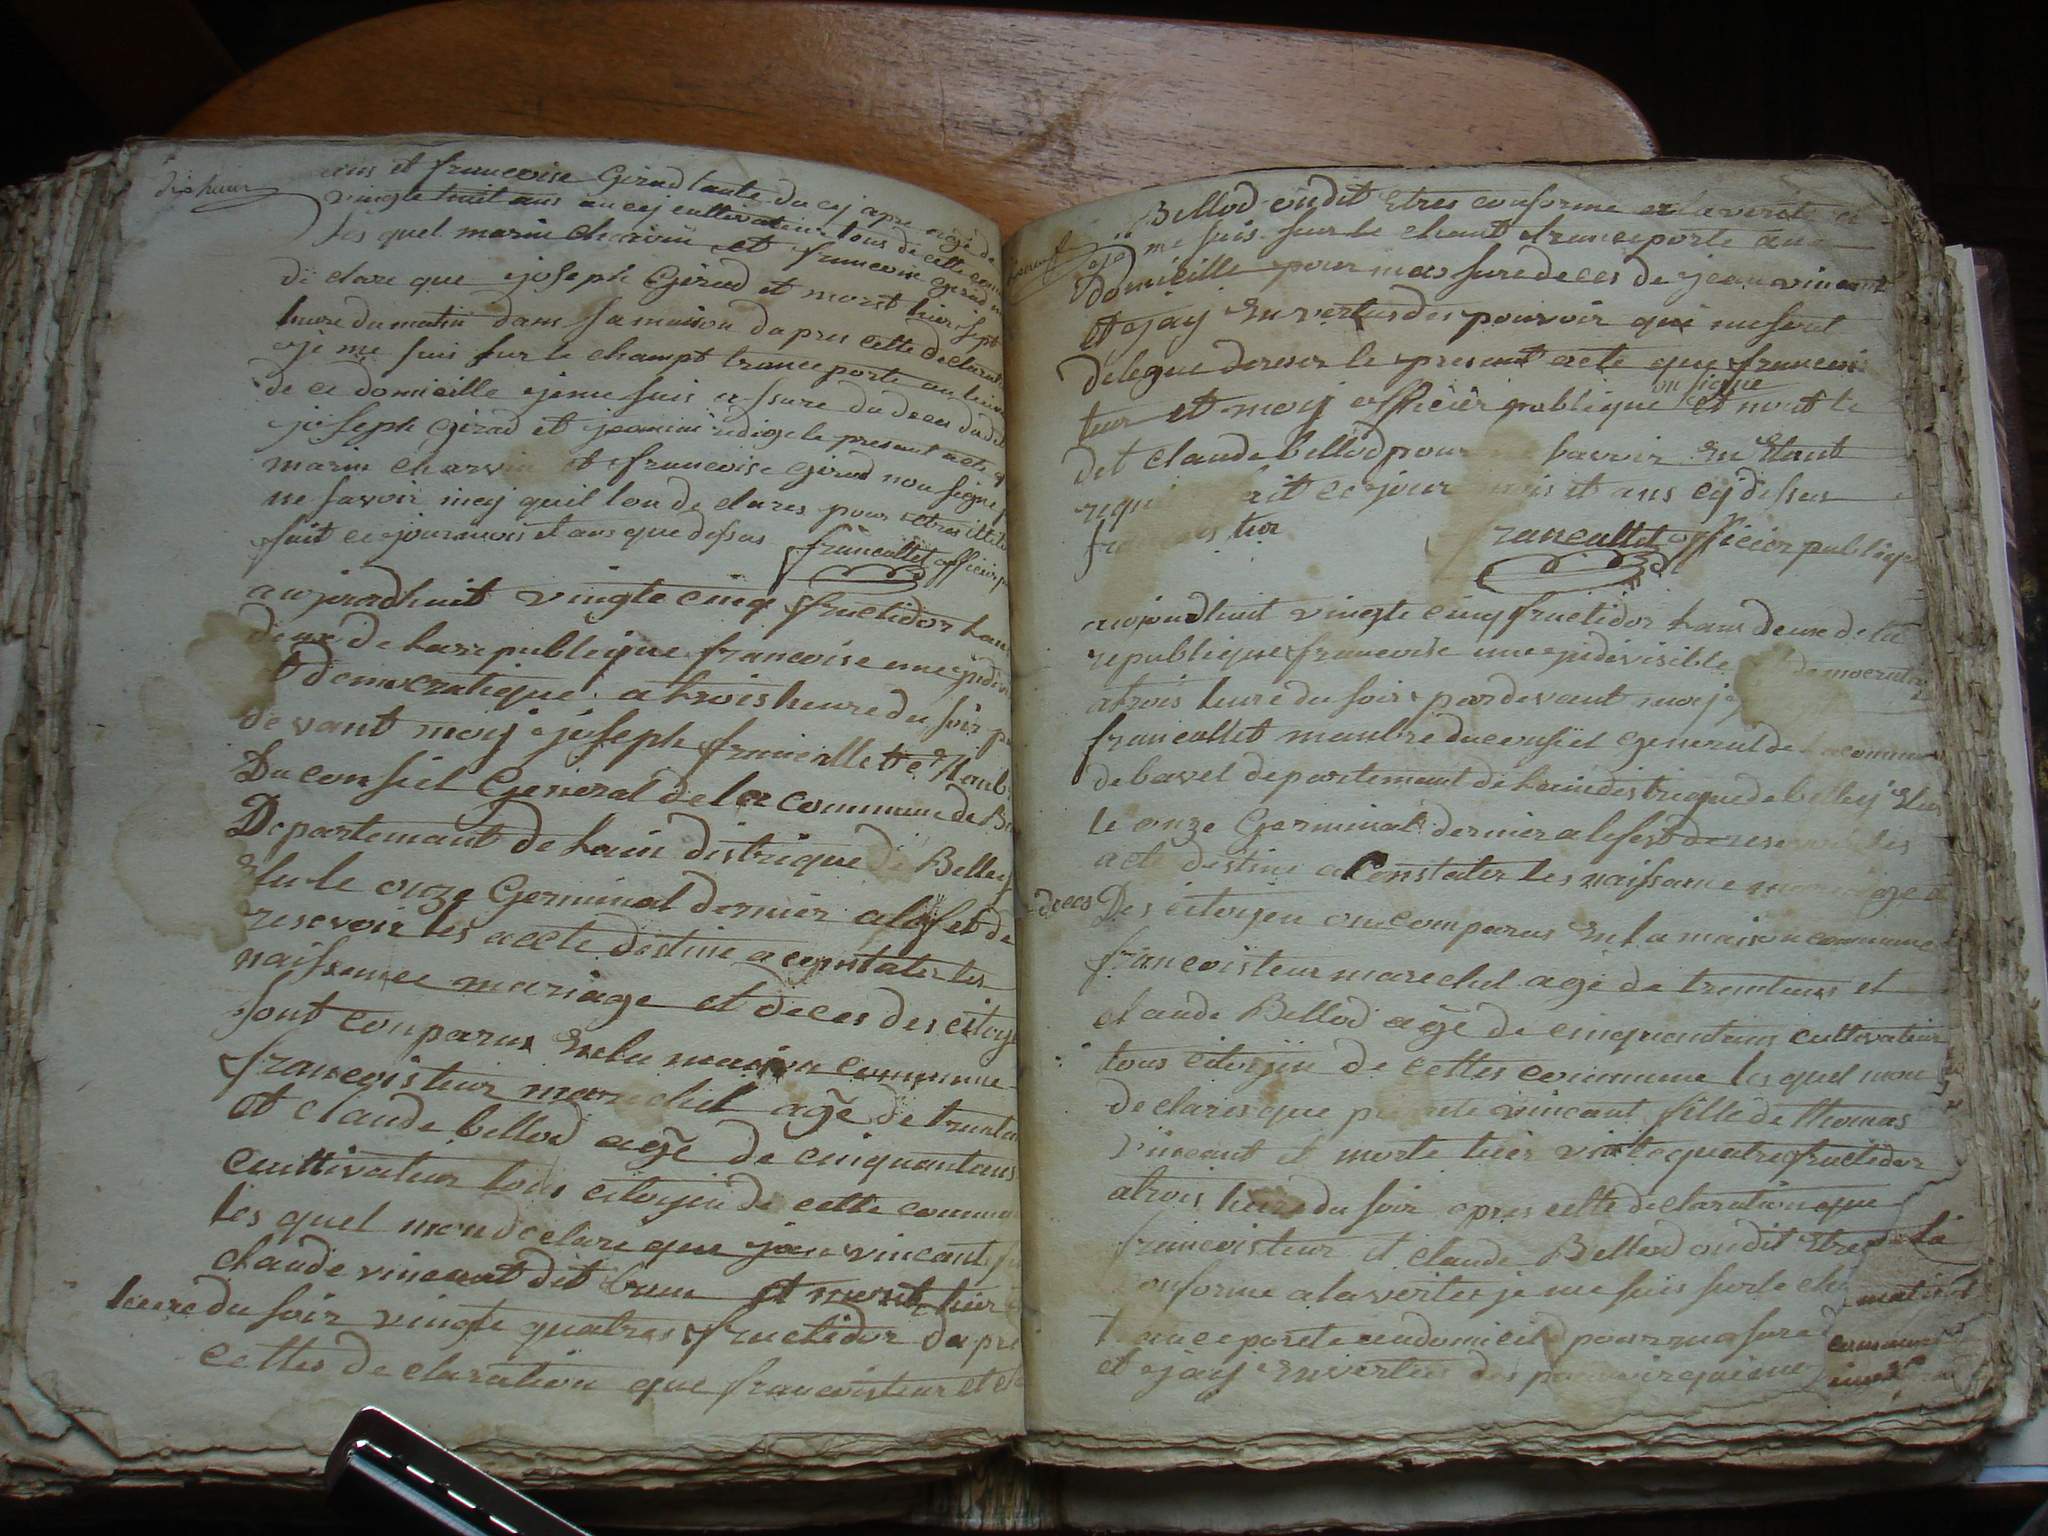 dix heure
ans et francoise Girod tante du cy apre agé de
vingte huit ans aucy cultivateur tous de cette
les quel marin charvin et francoise girod
de clare que joseph Girod et mort hier sept
heure du matin dans sa maison da pres cette declarati
je me suis sur le champt tranceporte au
de ce domicille je me suis assure du deces du dit
joseph girod et redige le presant acte q
marin charvin et francoise Girod non signe
ne savoir moy quil lon de clares pour
fait ce jour mois et ans que desus francallet officier p
aujourdhuit vingte cinq fructidor lans
deux de la republique francoise une jndivi
et democratique a trois heure du soir p
de vant moy joseph francallet Manb
Du consiel General de la commune de B
Departemant de lain distrique de Belley
Elu le onze Germinal dernier a lefet de
resevoir les acte destine a constater les
naissance mariage et deces des citoye
sont conparus En la maison commune
francois teur marechel agé de trentan
et claude bellod agé de cinquantans
cultivateur tous citoyin de cette commu
les quel mon declare que jean vincant
claude vincant dit brun et mort hier
heure du soir vingte quatres fructidor da pre
cettes de claration que francois teur et c
Bellod ondit Etres conforme a la verite
je me suis sur le chant tranceporte au
domicille pour mas sure deces de jean vincant
et jay En vertus des pouvoir qui me sont
delegue dereser le presant acte que francoi
on signe
teur et moy officier publique et nont le
dit claude bellod pour ne savoir En Etant
requi fait ce jour mois et ans cy desus
francois teur francallet officier publiqu
aujourdhuit vingte cinq fructidor lans deux de la
republique francoise une jndivisible democrati
a trois heure du soir pardevant moy
francallet manbre du consiel General de la commu
de bavel departemant de lain distrique de belley Elu
le onze Germinal dernier a lefet de resevoir les
acte destine a Constater les naissance mariage et
deces Des citoyen on comparus En la maison commune
francois teur marechel agé de trentans et
claude Bellod agé de cinquantans cultivateur
tous citoyin de cettes commune les quel mon
declares que vincant fille de thomas
vincant et morte hier vintequatre fructidor
a trois heure du soir apres cette declaration que
francois teur et claude Bellod ondit Etre
conforme a la verites je me suis sur le cha
tranceporte au domicile pour mas sure d
et jay En vertus des pouvoir qui me